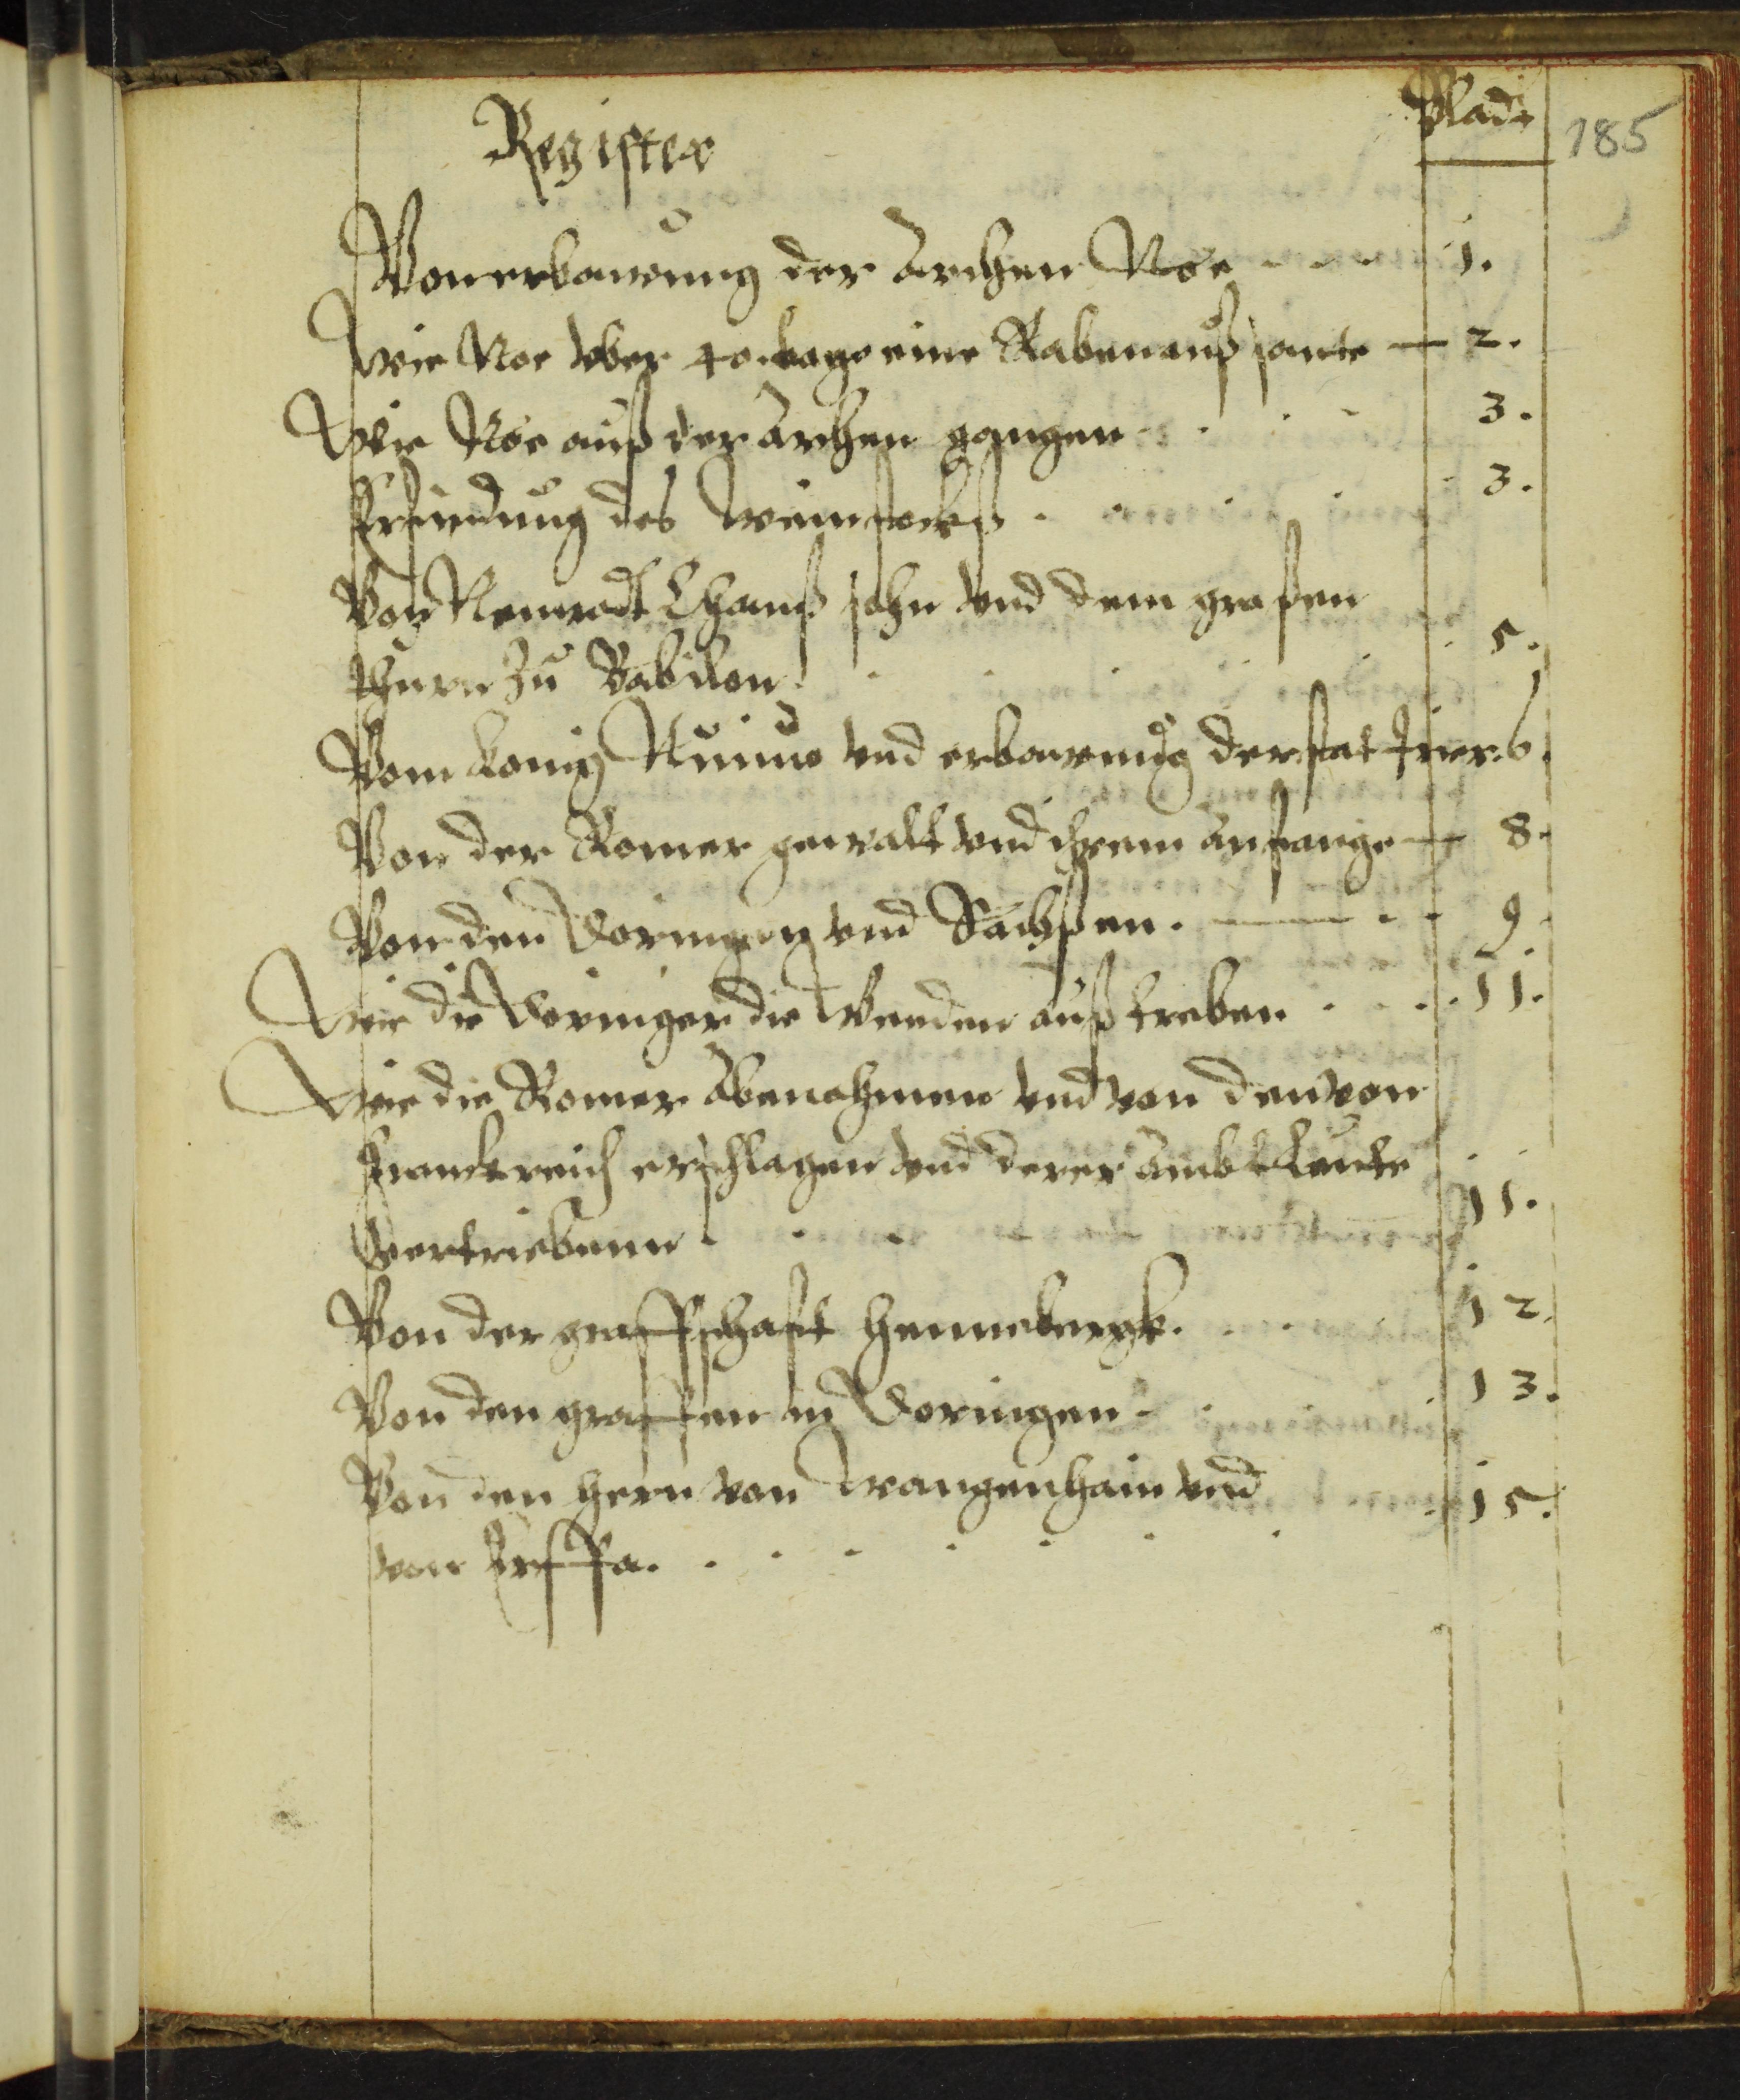 Register
Bladt
185
Von erbawung der Archen Noe - - - 1.
Wie Noe vber 40. tage eine Raben auß sante — 2.
Wie Noe auß der Archen gangen - . . - 3.
Erfindung des weinstocks . . . . 3.
Von Nemrodt Chams sohn vnd dem großen
thurn zu Babilon . . . . . 5.
Vom konig Ninuo vnd erbawung der stat Trier 6.
Von der Romer gewalt vnd ihrem anfange — 8.
Von den Doringen vnd Sachßen . — - - 9.
9.
Wie die Doringer die Wenden auß treben . . . . 11.
Wie die Romer Abenahmen vnd von den von
Franckreich erschlagen vnd derer ambtleute
vertriebenn . . . 11.
Von der graffschaft hennebergk . . . 12.
Von den graffen in Doringen - . . 13.
Von den hern von Wangenhain vnd 15.
von Erffa . . . . . . . .